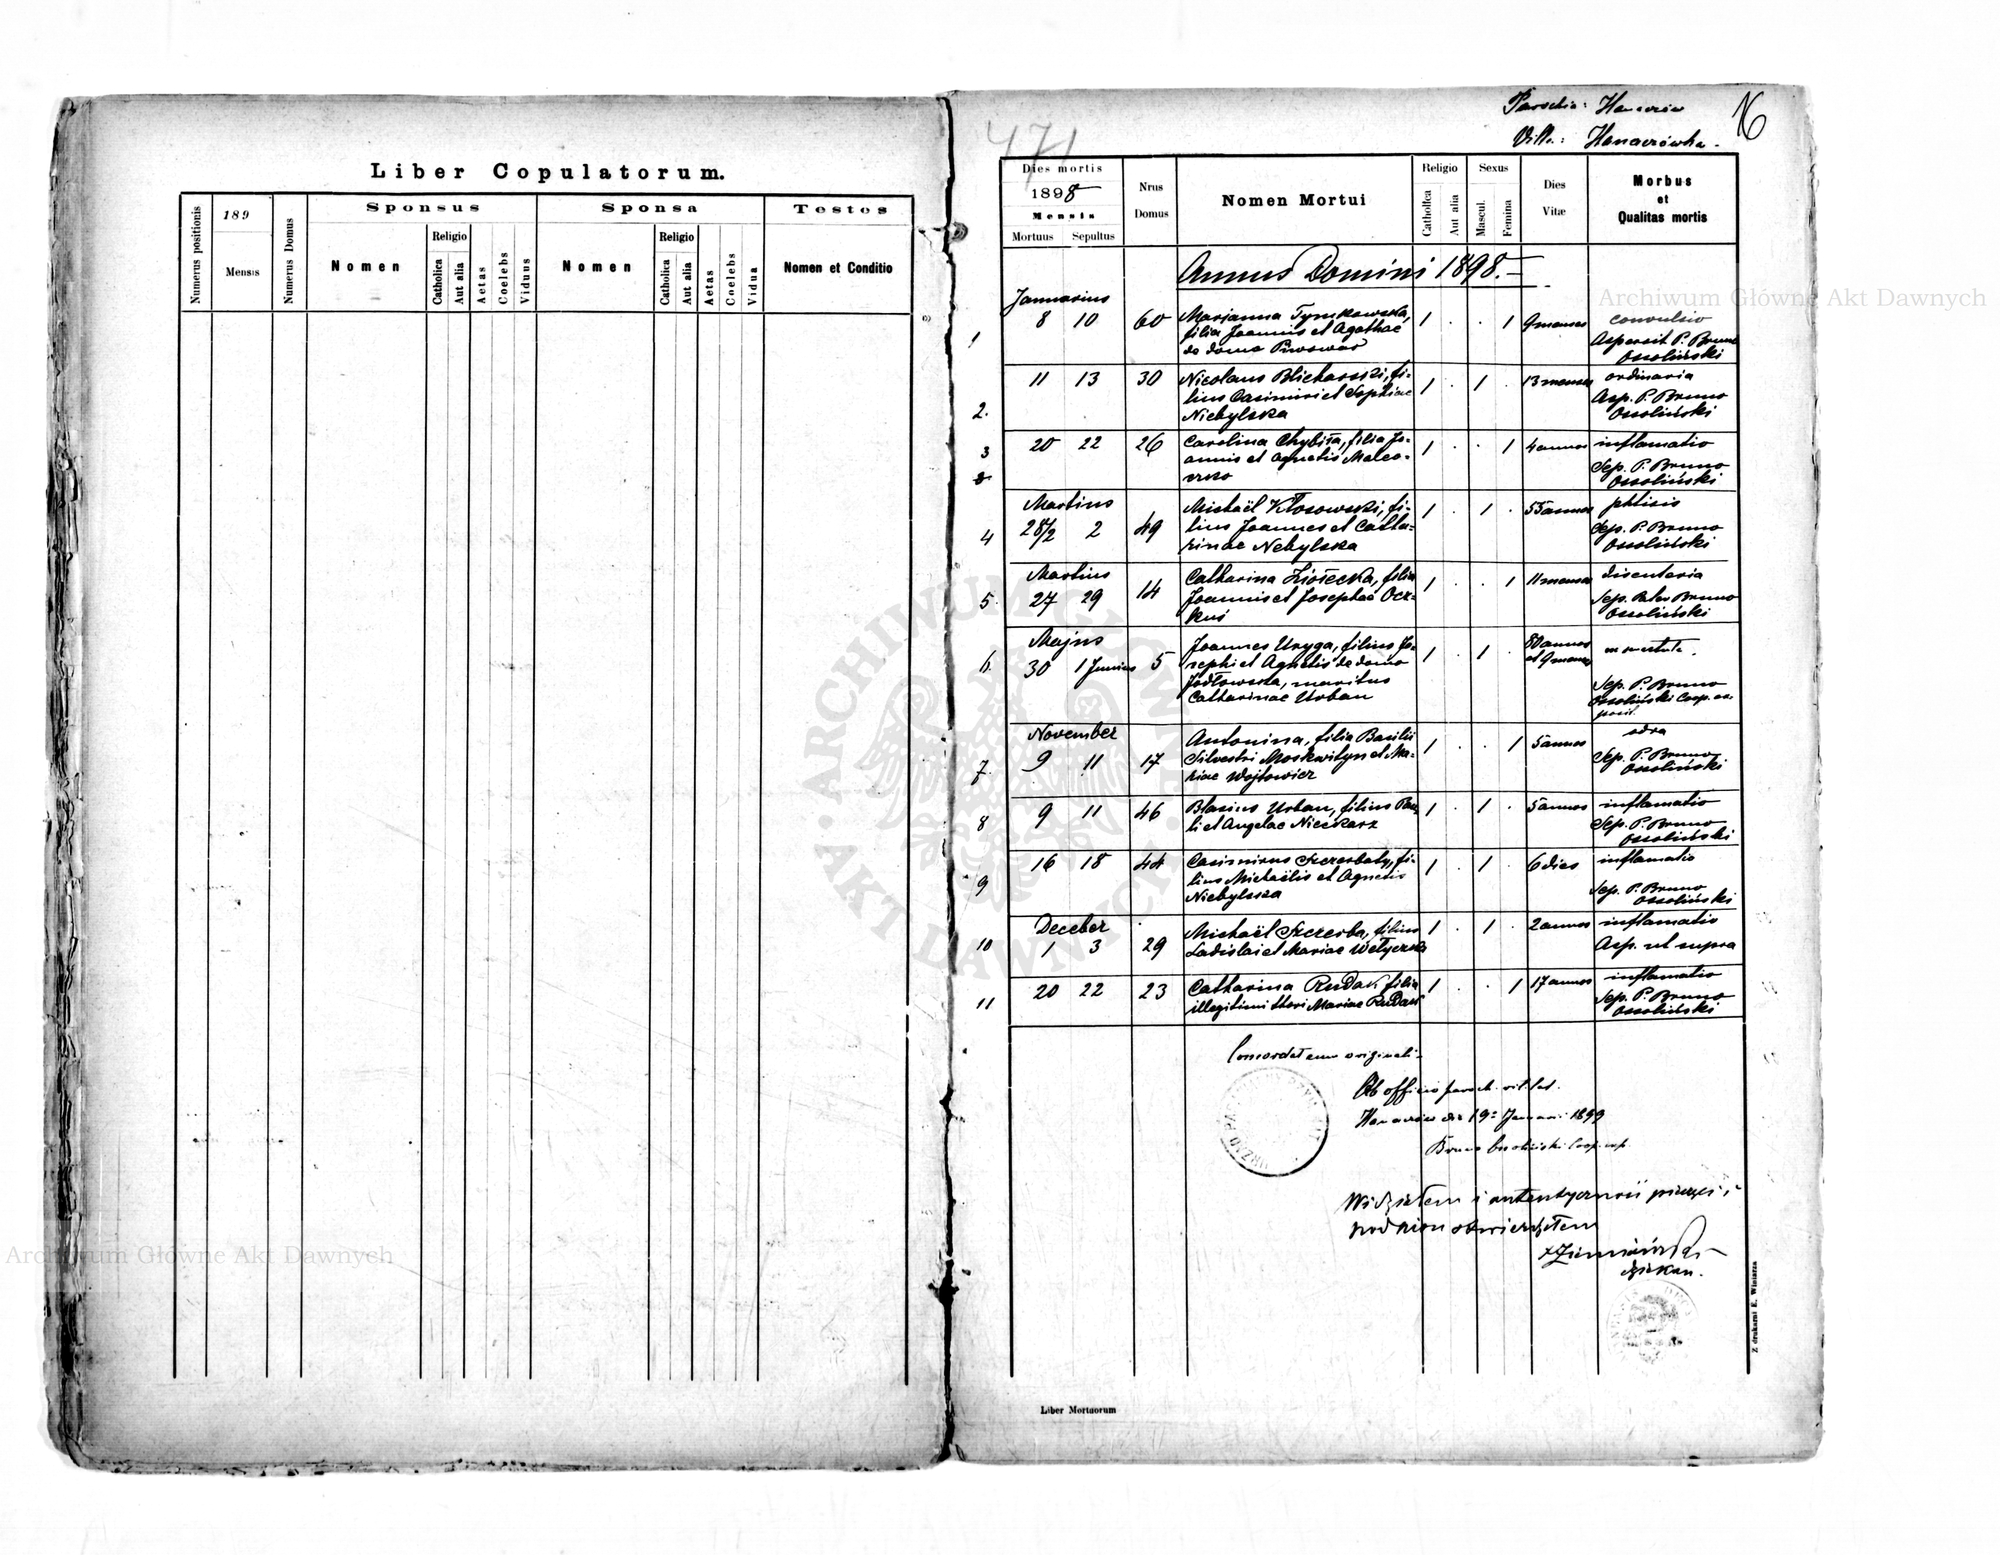 Liber Copulatorum.
Numerus positionis
189
Mensis
Numerus Domus
Sponsus
Nomen
Religio
Catholica
Aut alia
Aetas
Coelebs
Viduus
Sponsa
Nomen
Religio
Catholica
Aut alia
Aetas
Coelebs
Vidua
Testes
Nomen et Conditio
Parochia: Hanaczów
Villa: Hanaczówka.
16
471
Dies mortis
1898
Mensis
Mortuus Sepultus
Nrus
Domus
Nomen Mortui
Religio
Catholica
Aut alia
Sexus
Mascul.
Femina
Dies
Vitæ
Morbus
et
Qualitas mortis
Annus Domini 1898.
Januarius
1 8 10 60 Marianna Tymkowska, 1 . . 1 9 menses convulsio
filia Joannis et Agathae Aspersit P. Bruno
de domo Piwowar Ossoliński
2. 11 13 30 Nicolaus Blicharski, fi- 1 . 1 . 13 menses ordinaria
lius Casimiri et Sophiae Asp. P. Bruno
Niebylska Ossoliński
3 20 22 26 Carolina Chybiła, filia Jo- 1 . . 1 4 annos inflamatio
annis et Agnetis Sep. P. Bruno
Ossoliński
Martius
4 28/2 2 49 Michaël Kłosowski, fi- 1 . 1 . 55 annos phtisis
lius Joannes et Catha- Sep. P. Bruno
rinae Nebylska Ossoliński
Martius
5. 27 29 14 Catharina Ziołecka, filia 1 . . 1 11 menses disenteria
Joannis et Josephae Ocz- Sep. Pater Bruno
kuś Ossoliński
Majus
6. 30 1 Junius 5 Joannes Uryga, filius Jo- 1 . 1 . 80 annos
sephi et Agnetis de domo et 9 menses
Jodłowska, maritus Sep. P. Bruno
Catharinae Urban Ossoliński Coop. ex-
posit.
November
7. 9 11 17 Antonina, filia Basilii 1 . . 1 5 annos odra
Silvestri Moskwityn et Ma- Sep. P. Bruno
riae Wojtowicz Ossoliński
8 9 11 46 Blasius Urban, filius Pau- 1 . 1 . 5 annos inflamatio
li et Angelae Niećkarz Sep. P. Bruno
Ossoliński
9 16 18 44 Casimirus Szczerbaty, fi- 1 . 1 . 6 dies inflamatio
lius Michaëlis et Agnetis Sep. P. Bruno
Niebylska Ossoliński
Deceber
10 1 3 29 Michaël Szczerba, filius 1 . 1 . 2 annos inflamatio
Ladislai et Mariae Wełyczko Asp. ut supra
11 20 22 23 Catharina Rudak filia 1 . . 1 17 annos inflamatio
illegitimi thori Mariae Rudak Sep. P. Bruno
Ossoliński
Concordat cum originali.
Ab officio paroch. rit. lat.
Hanaczów die 19 Januari 1899
Bruno Ossoliński Coop. exp.
Widziałem i autentyczność pieczęci i
podpisu stwierdziłem
dziekan.
Z drukarni E. Winiarza
Liber Mortuorum
Archiwum Główne Akt Dawnych
Archiwum Główne Akt Dawnych
ARCHIWUM GŁÓWNE AKT DAWNYCH